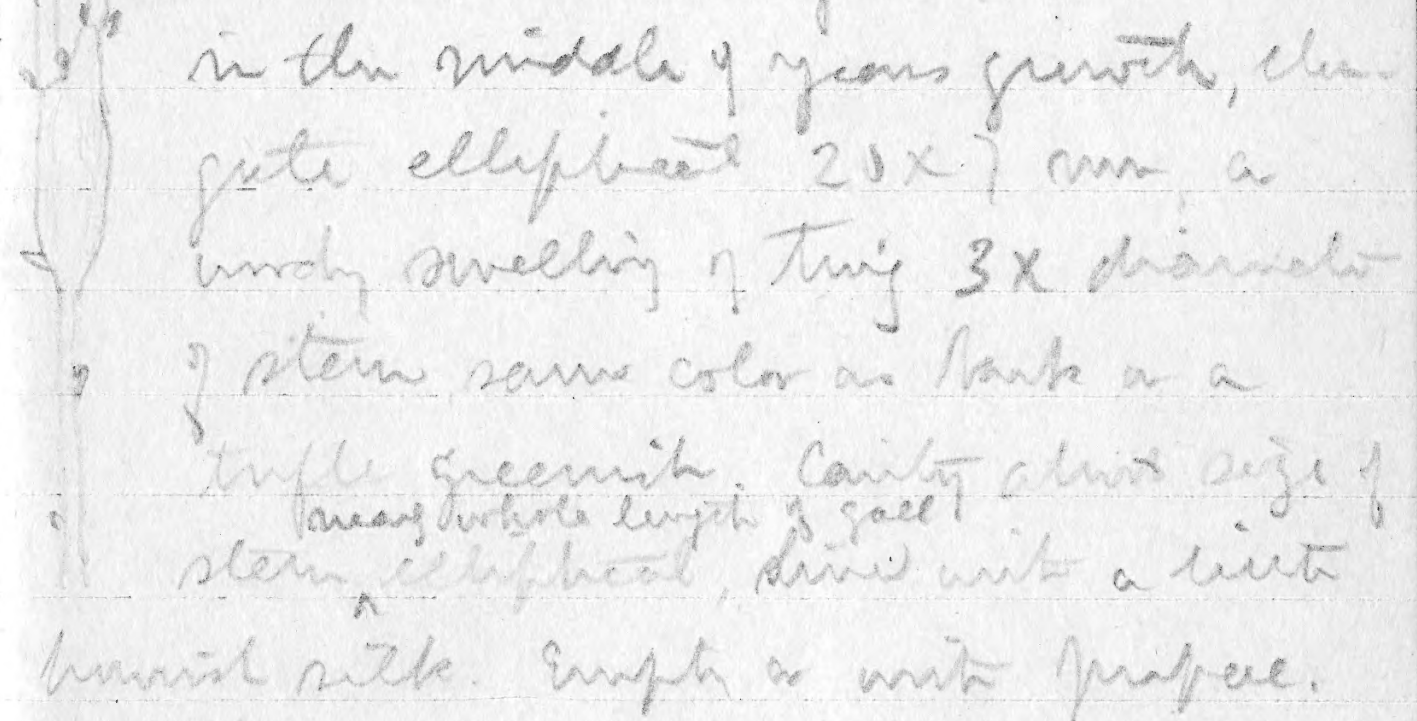 in the middle of years growth, elon-
gate elliptical 20 x 7 mm, a
woody swelling of twig 3 x diameter
of stem same color as bark or a
trifle greenish. Cavity about size of
nearly whole length of gall
stem ^ elliptical, lined with a little
brownish silk. Empty or with pupae.